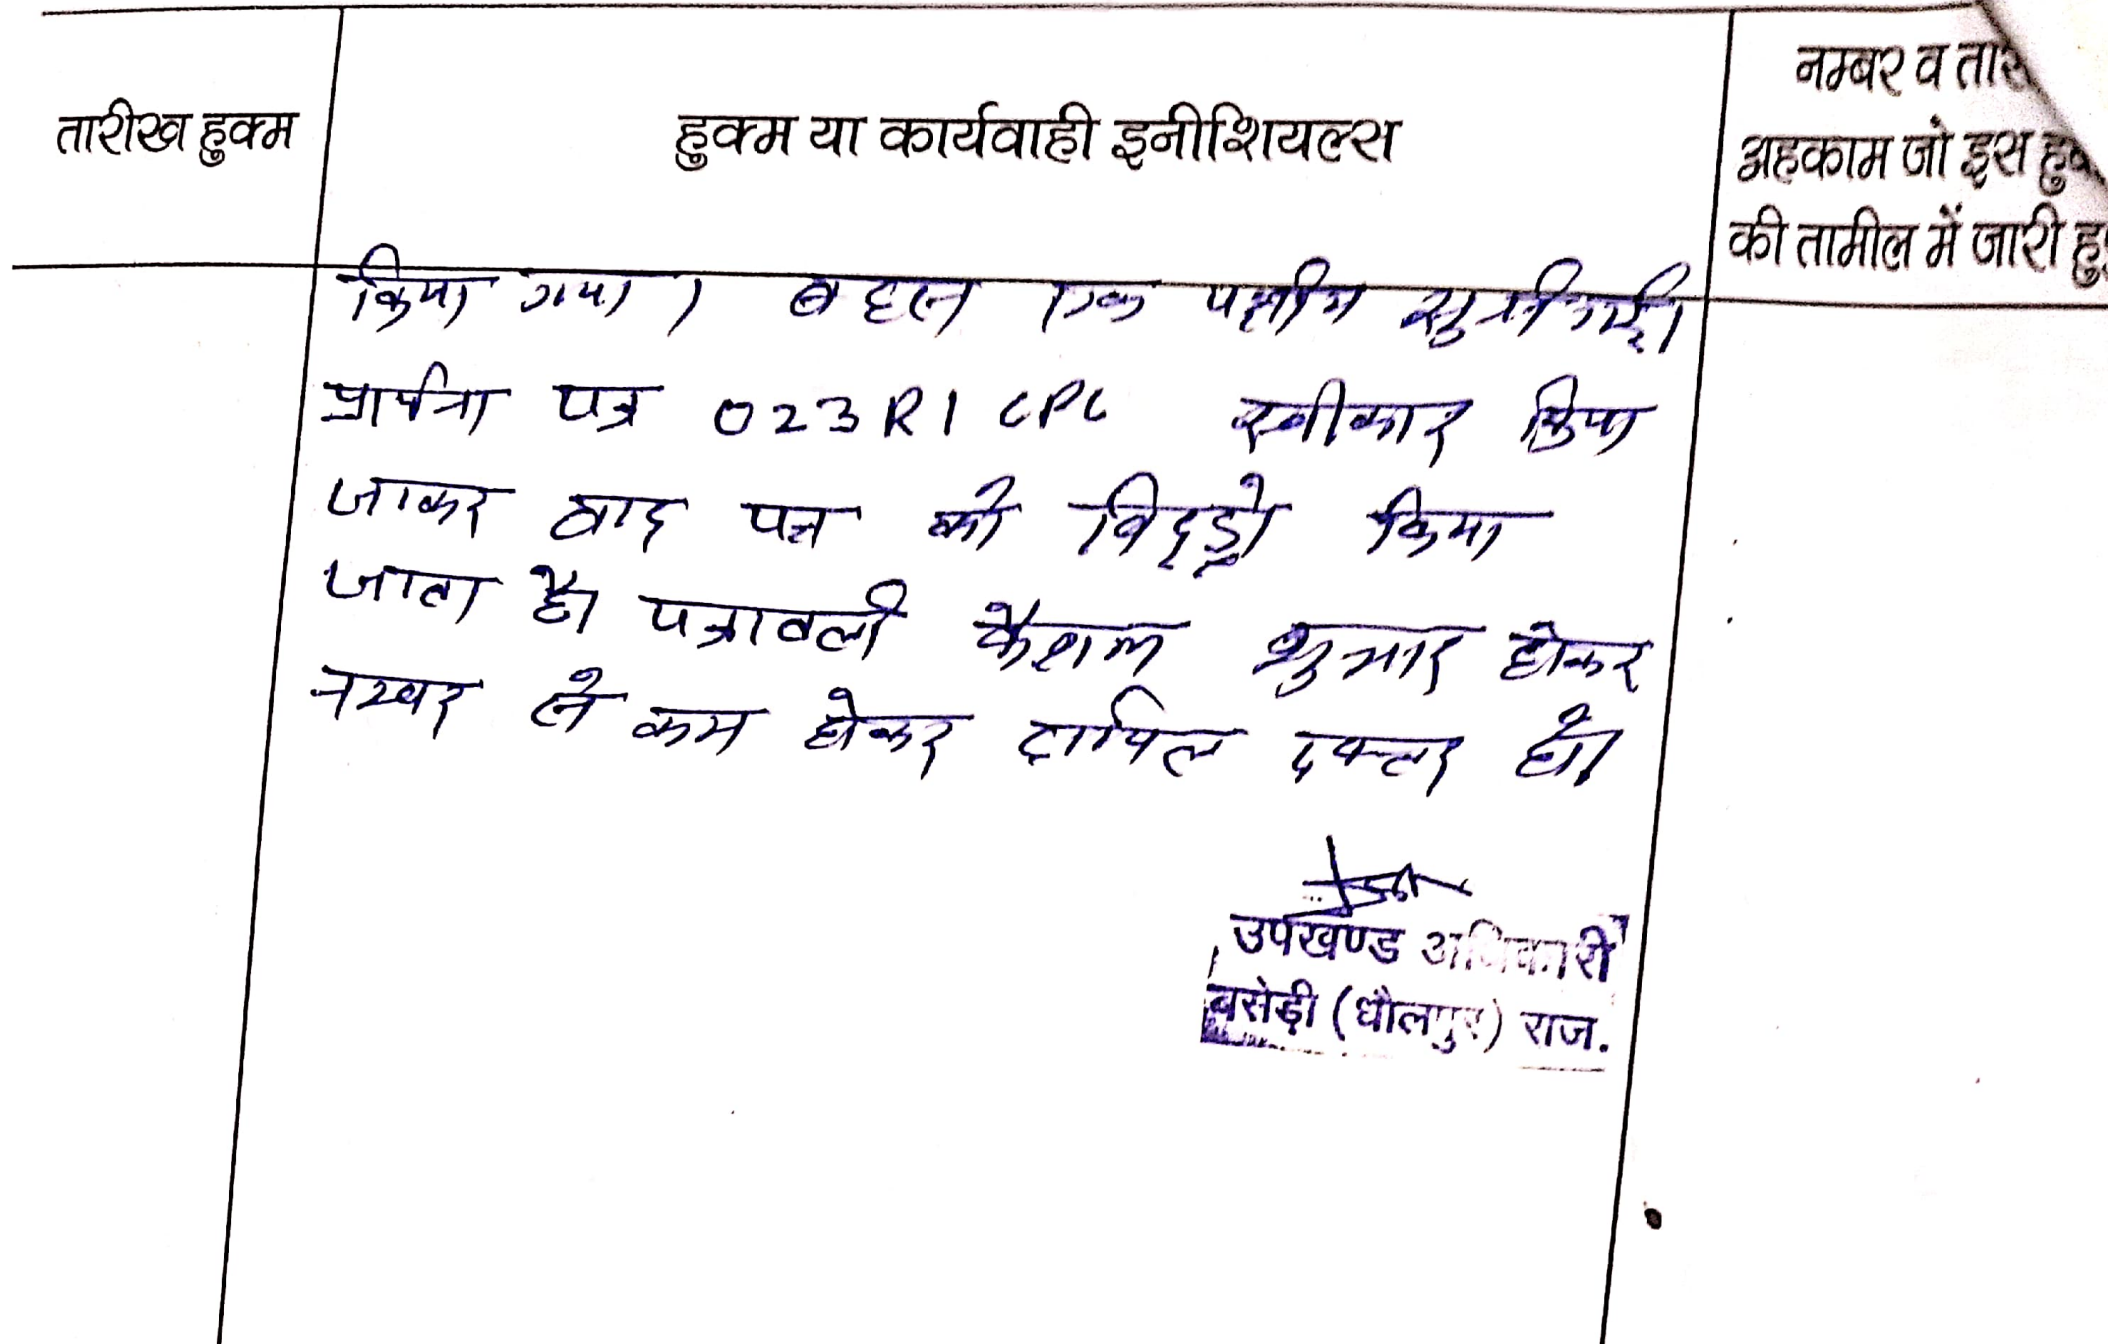 तारीख हुक्म
हुक्म या कार्यवाही इनीशियल्स
नम्बर व तारी
अहकाम जो इस हु
की तामील में जारी हु
किया गया। बहस एक पक्षीय सुनी गई।
प्रार्थना पत्र 023R1 CPC स्वीकार किया
जाकर वाद पत्र को विदड्रो किया
जाता है। पत्रावली फैसल शुमार होकर
नम्बर से कम होकर दाखिल दफ्तर हो।
उपखण्ड अधिकारी
बसेड़ी (धौलपुर) राज.